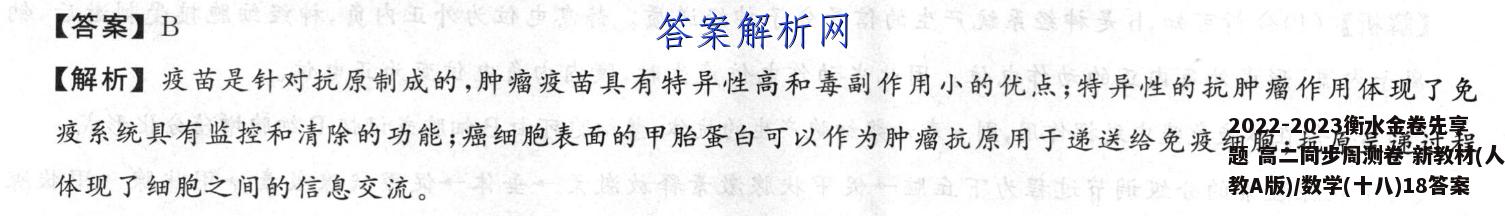 【答案】B
答案解析网
【解析】疫苗是针对抗原制成的,肿瘤疫苗具有特异性高和毒副作用小的优点;特异性的抗肿瘤作用体现了免
疫系统具有监控和清除的功能;癌细胞表面的甲胎蛋白可以作为肿瘤抗原用于递送给免疫细胞;抗原呈递过程
体现了细胞之间的信息交流。
2022-2023衡水金卷先享
题 高二同步周测卷 新教材(人
教A版)/数学(十八)18答案